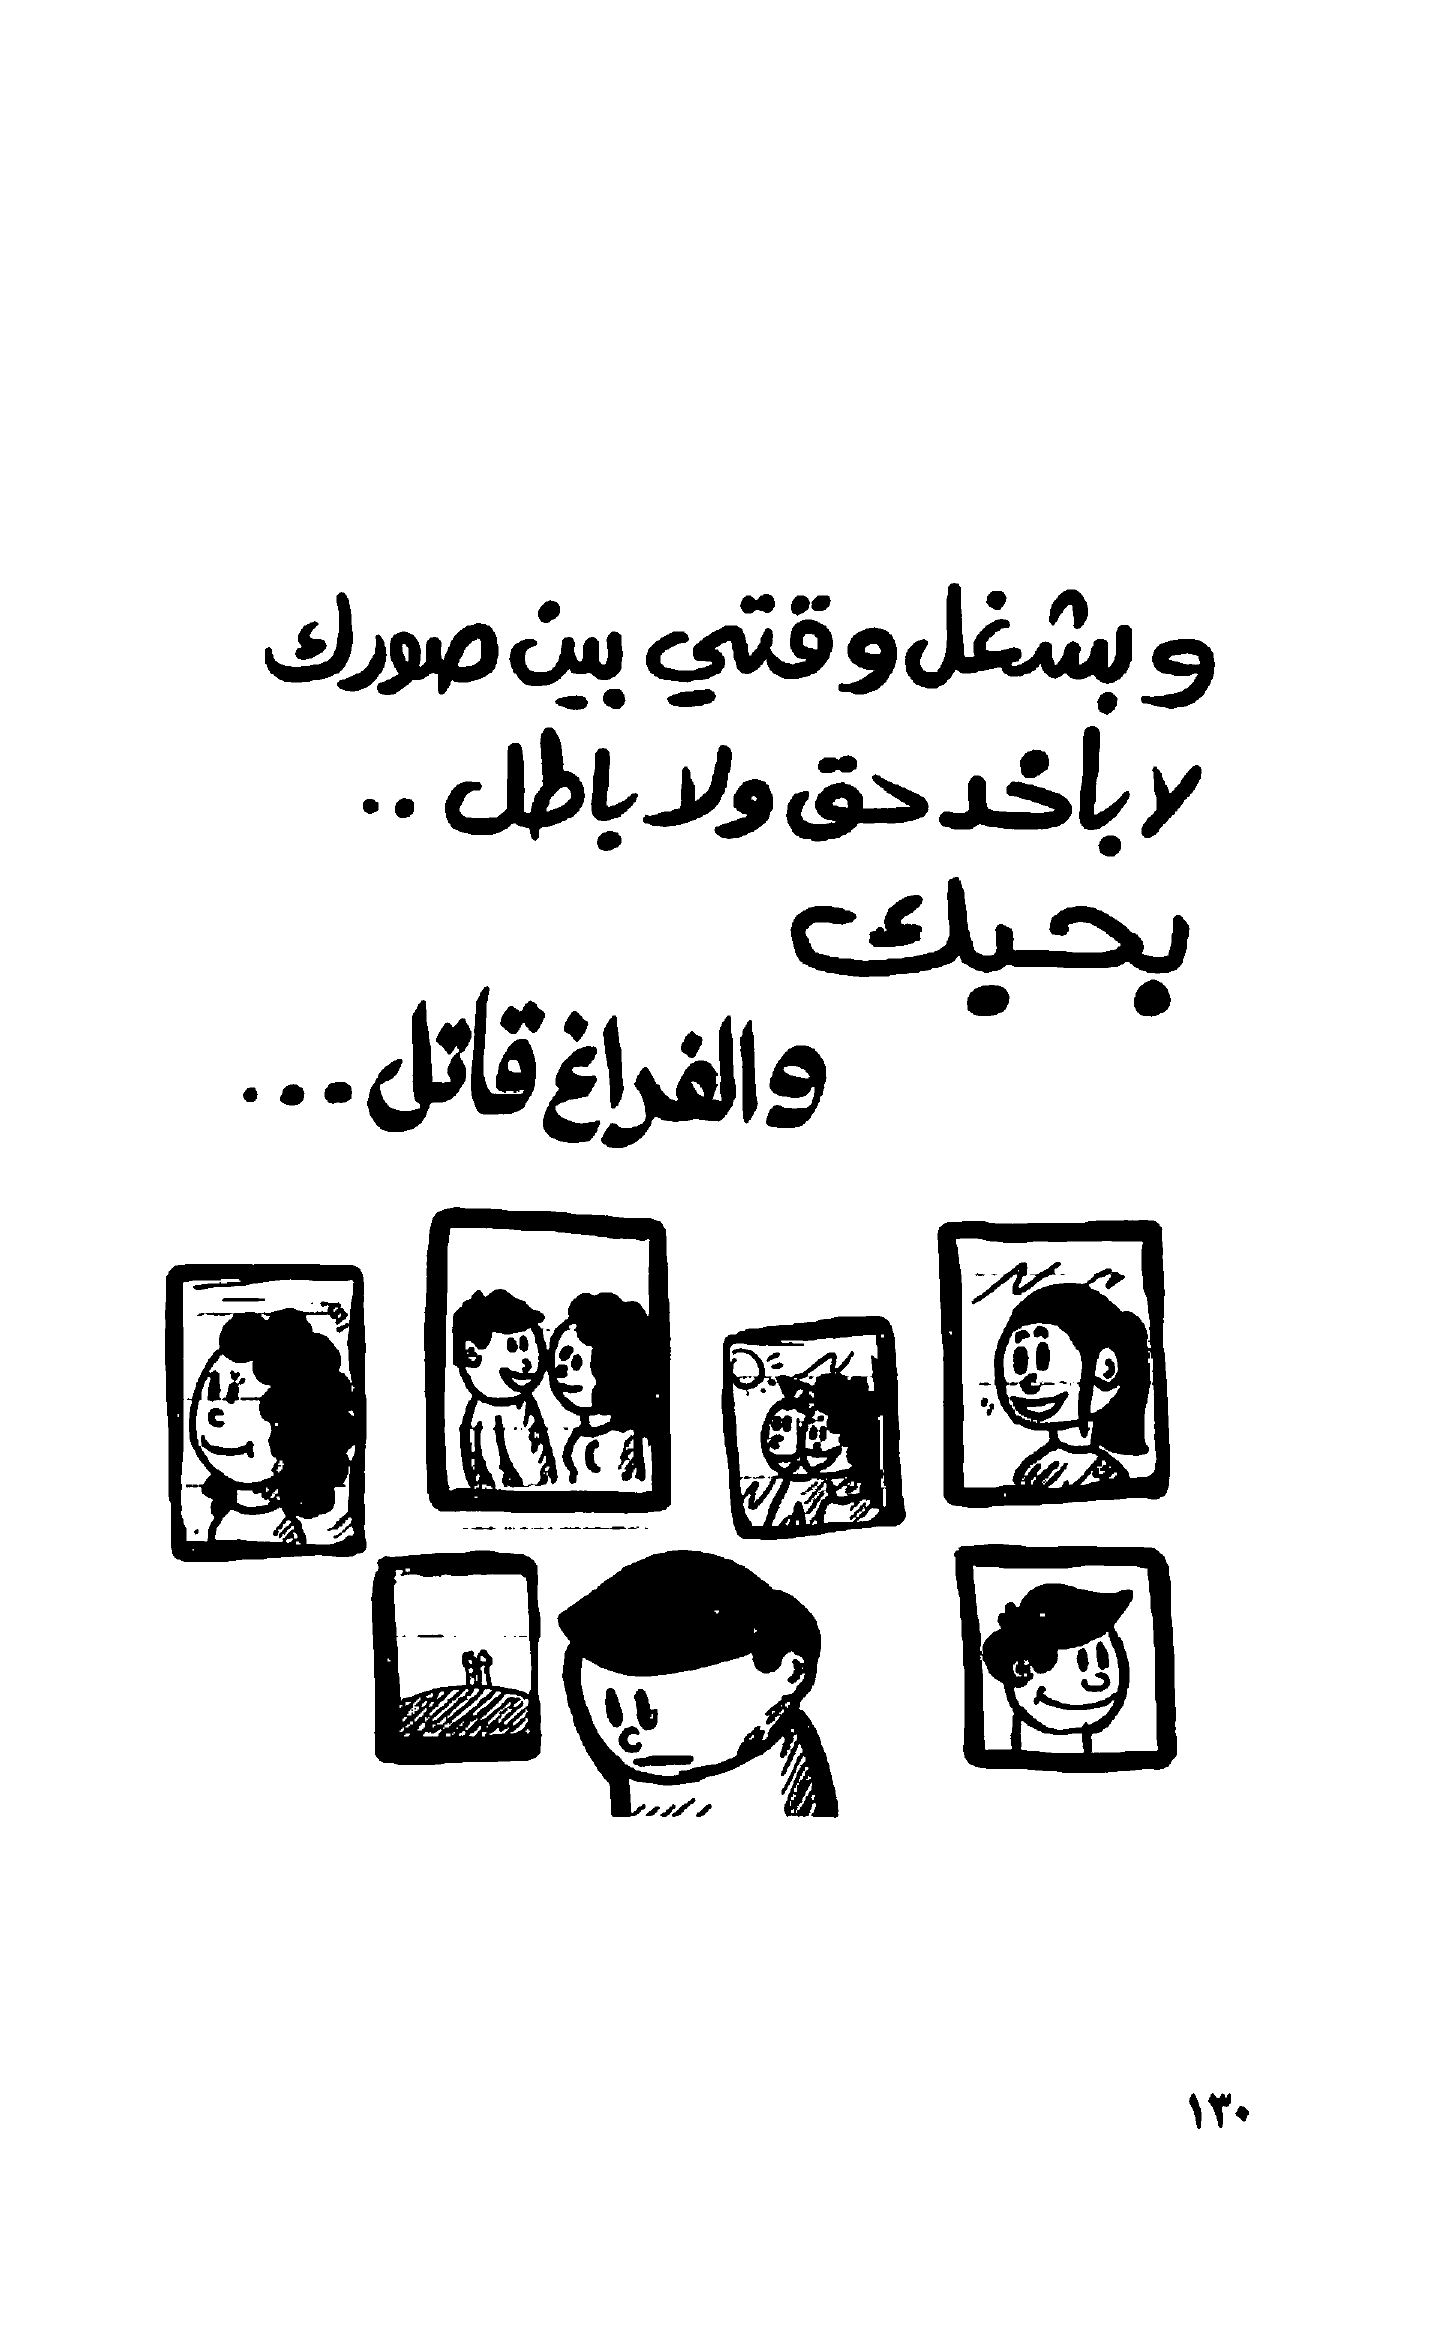 وبشغل وقتي بين صورك
لا بأخد حق ولا باطل ..
بحبك
والفراغ قاتل ...
١٣٠